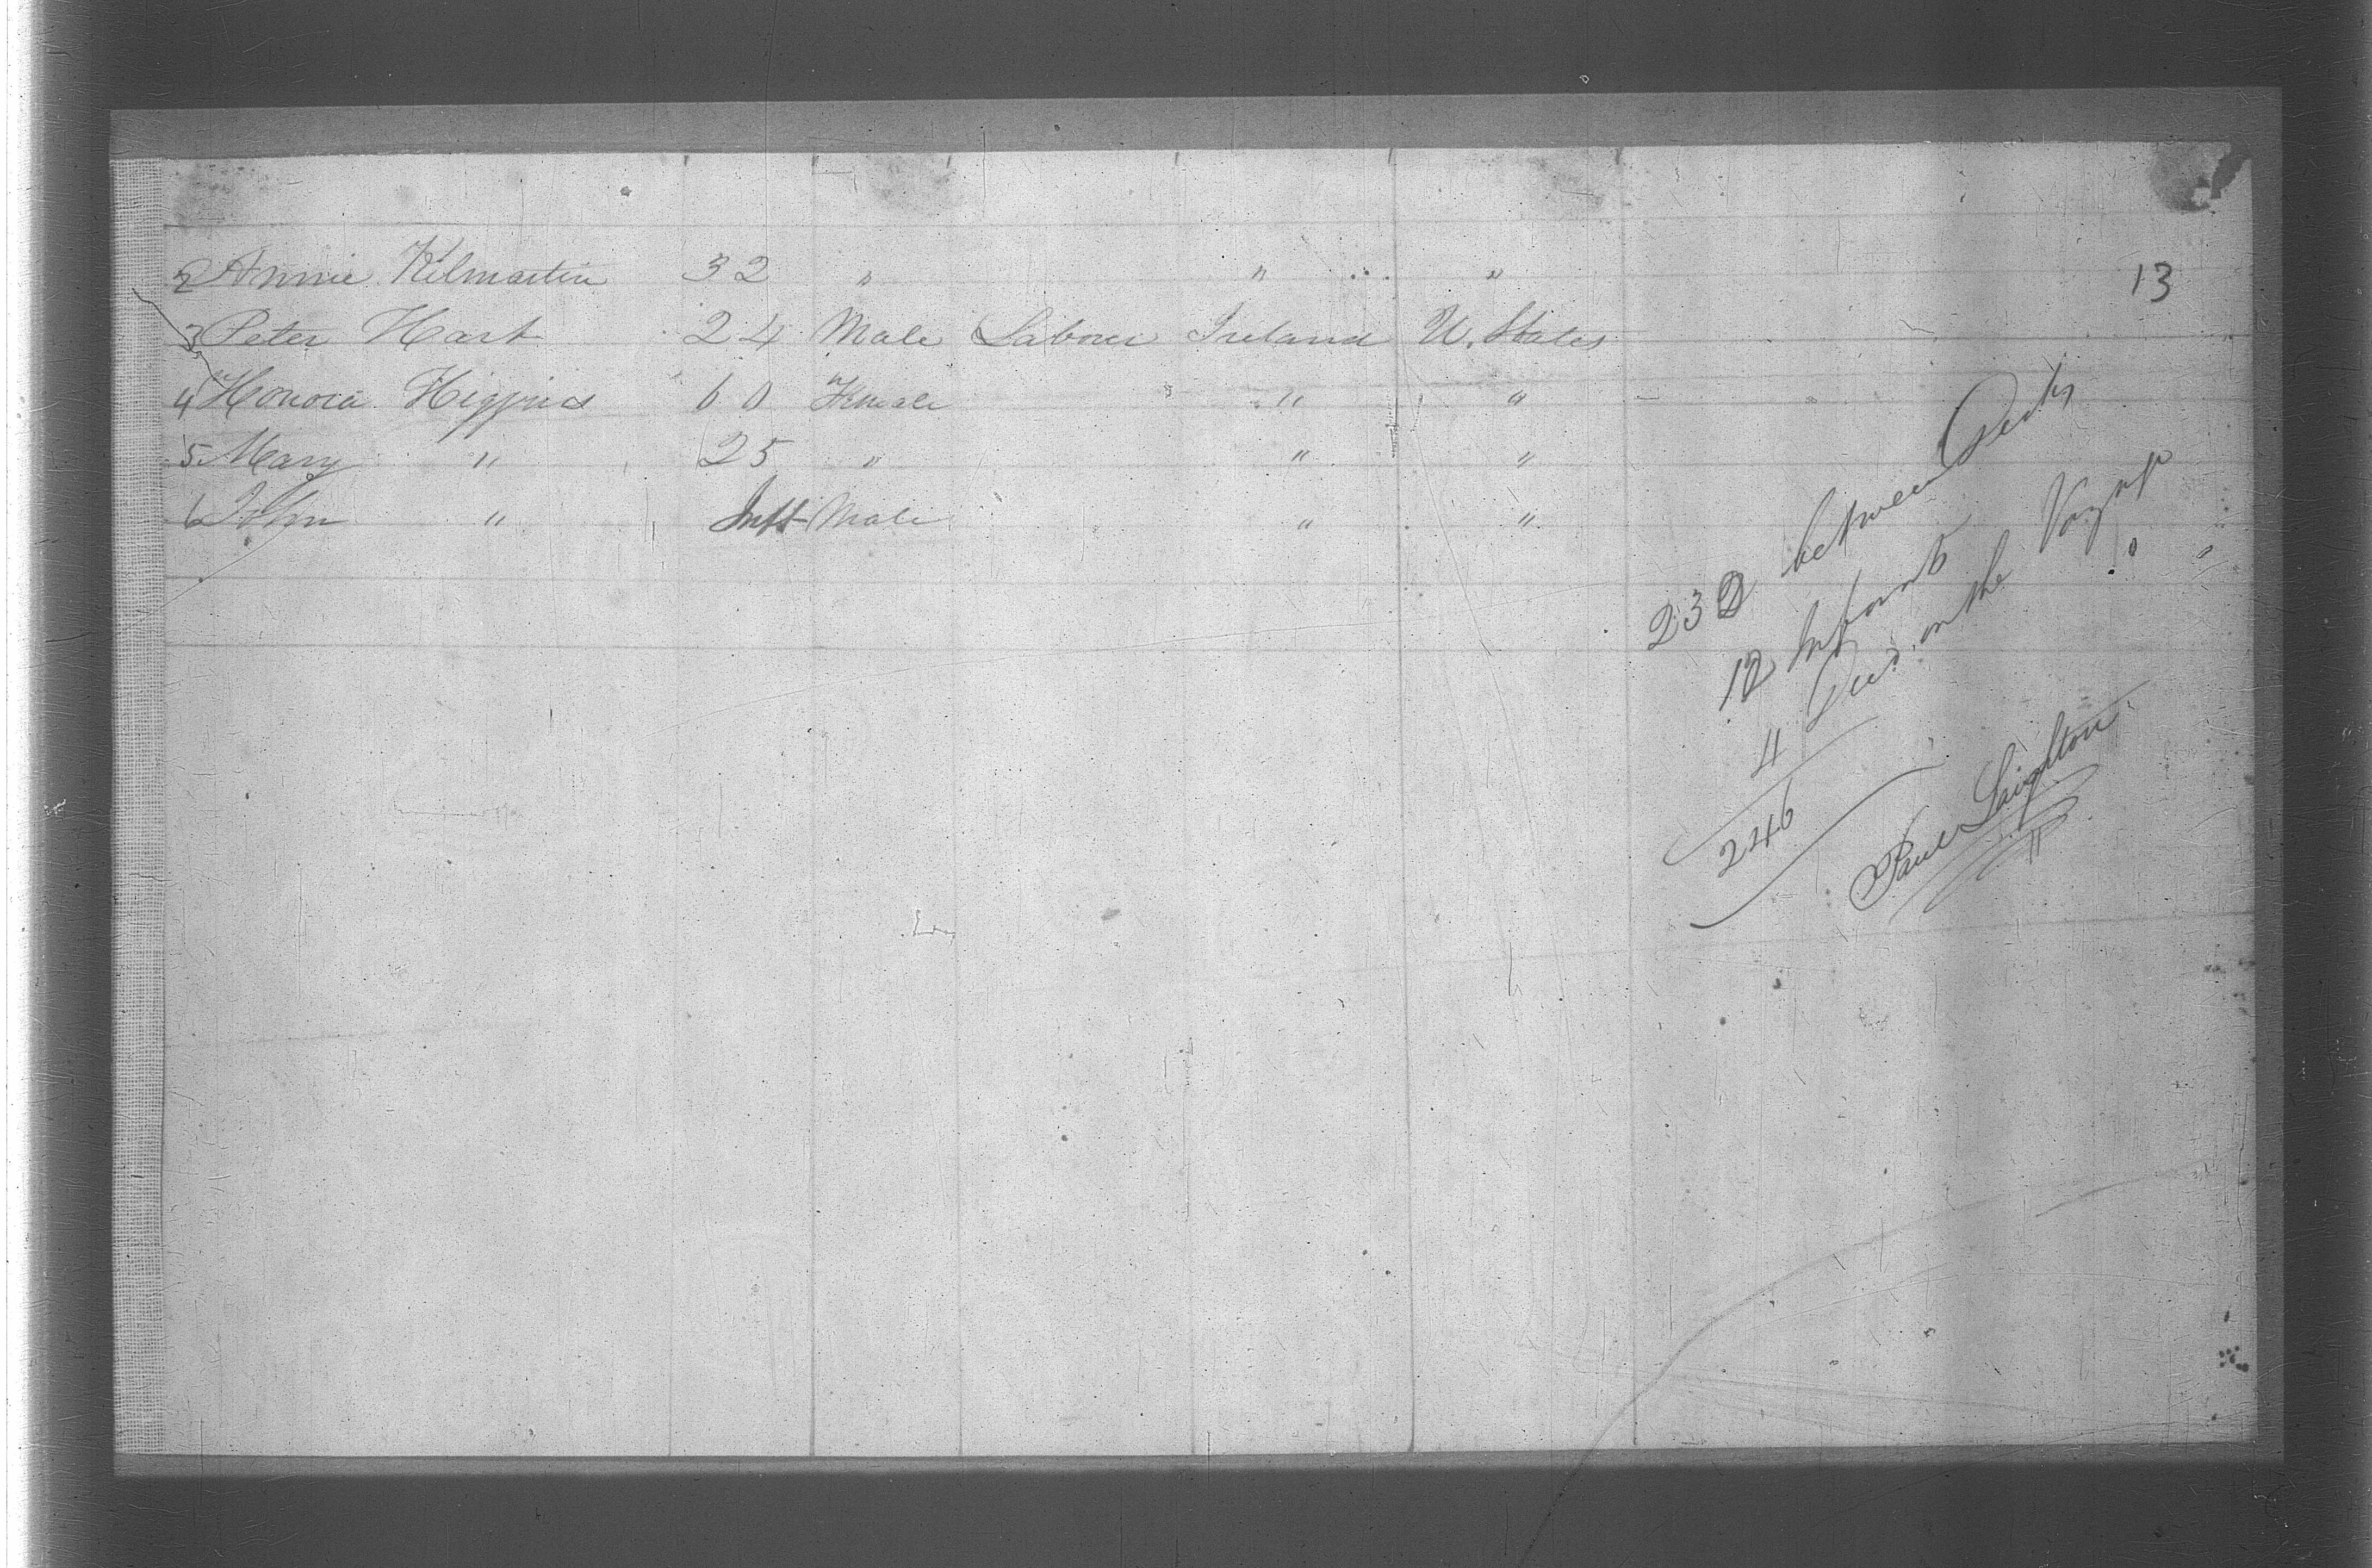 2 Annie Kilmartin 32 " " "
13
3 Peter Hart 24 Male Labour Ireland U. States
4 Honora Higgins 60 Female " "
5 Mary " 25 " " "
6 John " Inft Male " "
232 between Decks
12 Infants
4 Died on the Voyage
246
Paul Leighton